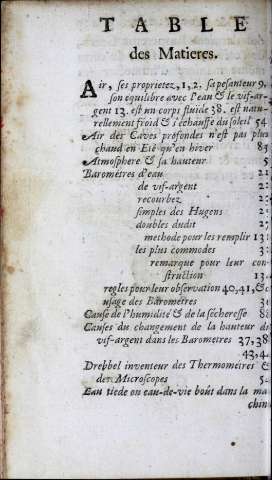 TABLE
des Matieres.
Air, ses proprietez, 1, 2, sa pesanteur 9.
son equilibre avec l'eau & le vif-ar-
gent 13. est un corps fluide 38. est natu-
rellement froid & s'échauffe du soleil 54
Air des Caves profondes n'est pas plus
chaud en Eté qu'en hiver 83
Atmosphere & sa hauteur 5
Barometres d'eau 21
de vif-argent 22
recourbez 23
simples des Hugens 2
doubles dudit 27
methode pour les remplir 13
les plus commodes 3
remarque pour leur con-
struction 13
regles pour leur observation 40, 41, &
usage des Barometres 3
Cause de l'humidité & de la sécheresse 88
Causes du changement de la hauteur du
vif-argent dans les Barometres 37, 38
43, 4
Drebbel inventeur des Thermometres &
des Microscopes 5
Eau tiede ou eau-de-vie boût dans la ma
chin